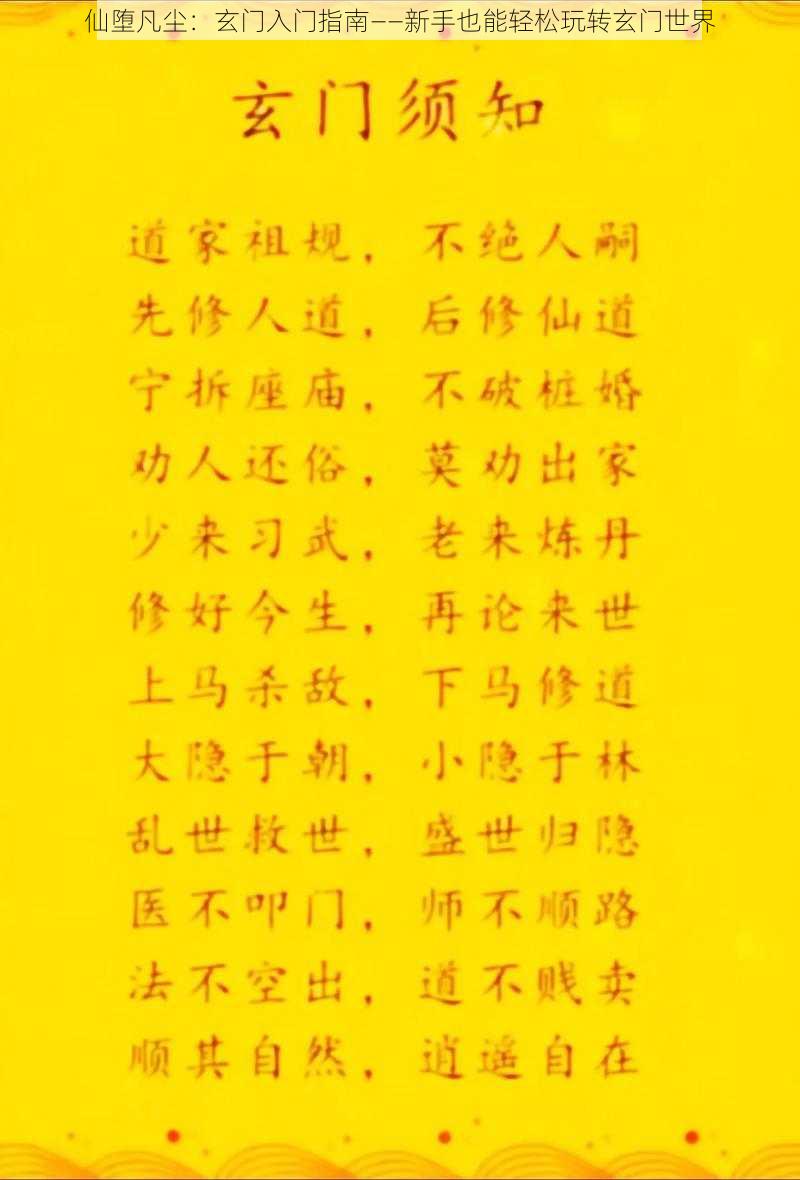 仙堕凡尘：玄门入门指南——新手也能轻松玩转玄门世界
玄门须知
道家祖规，不绝人嗣
先修人道，后修仙道
宁拆座庙，不破桩婚
劝人还俗，莫劝出家
少来习武，老来炼丹
修好今生，再论来世
上马杀敌，下马修道
大隐于朝，小隐于林
乱世救世，盛世归隐
医不叩门，师不顺路
法不空出，道不贱卖
顺其自然，逍遥自在